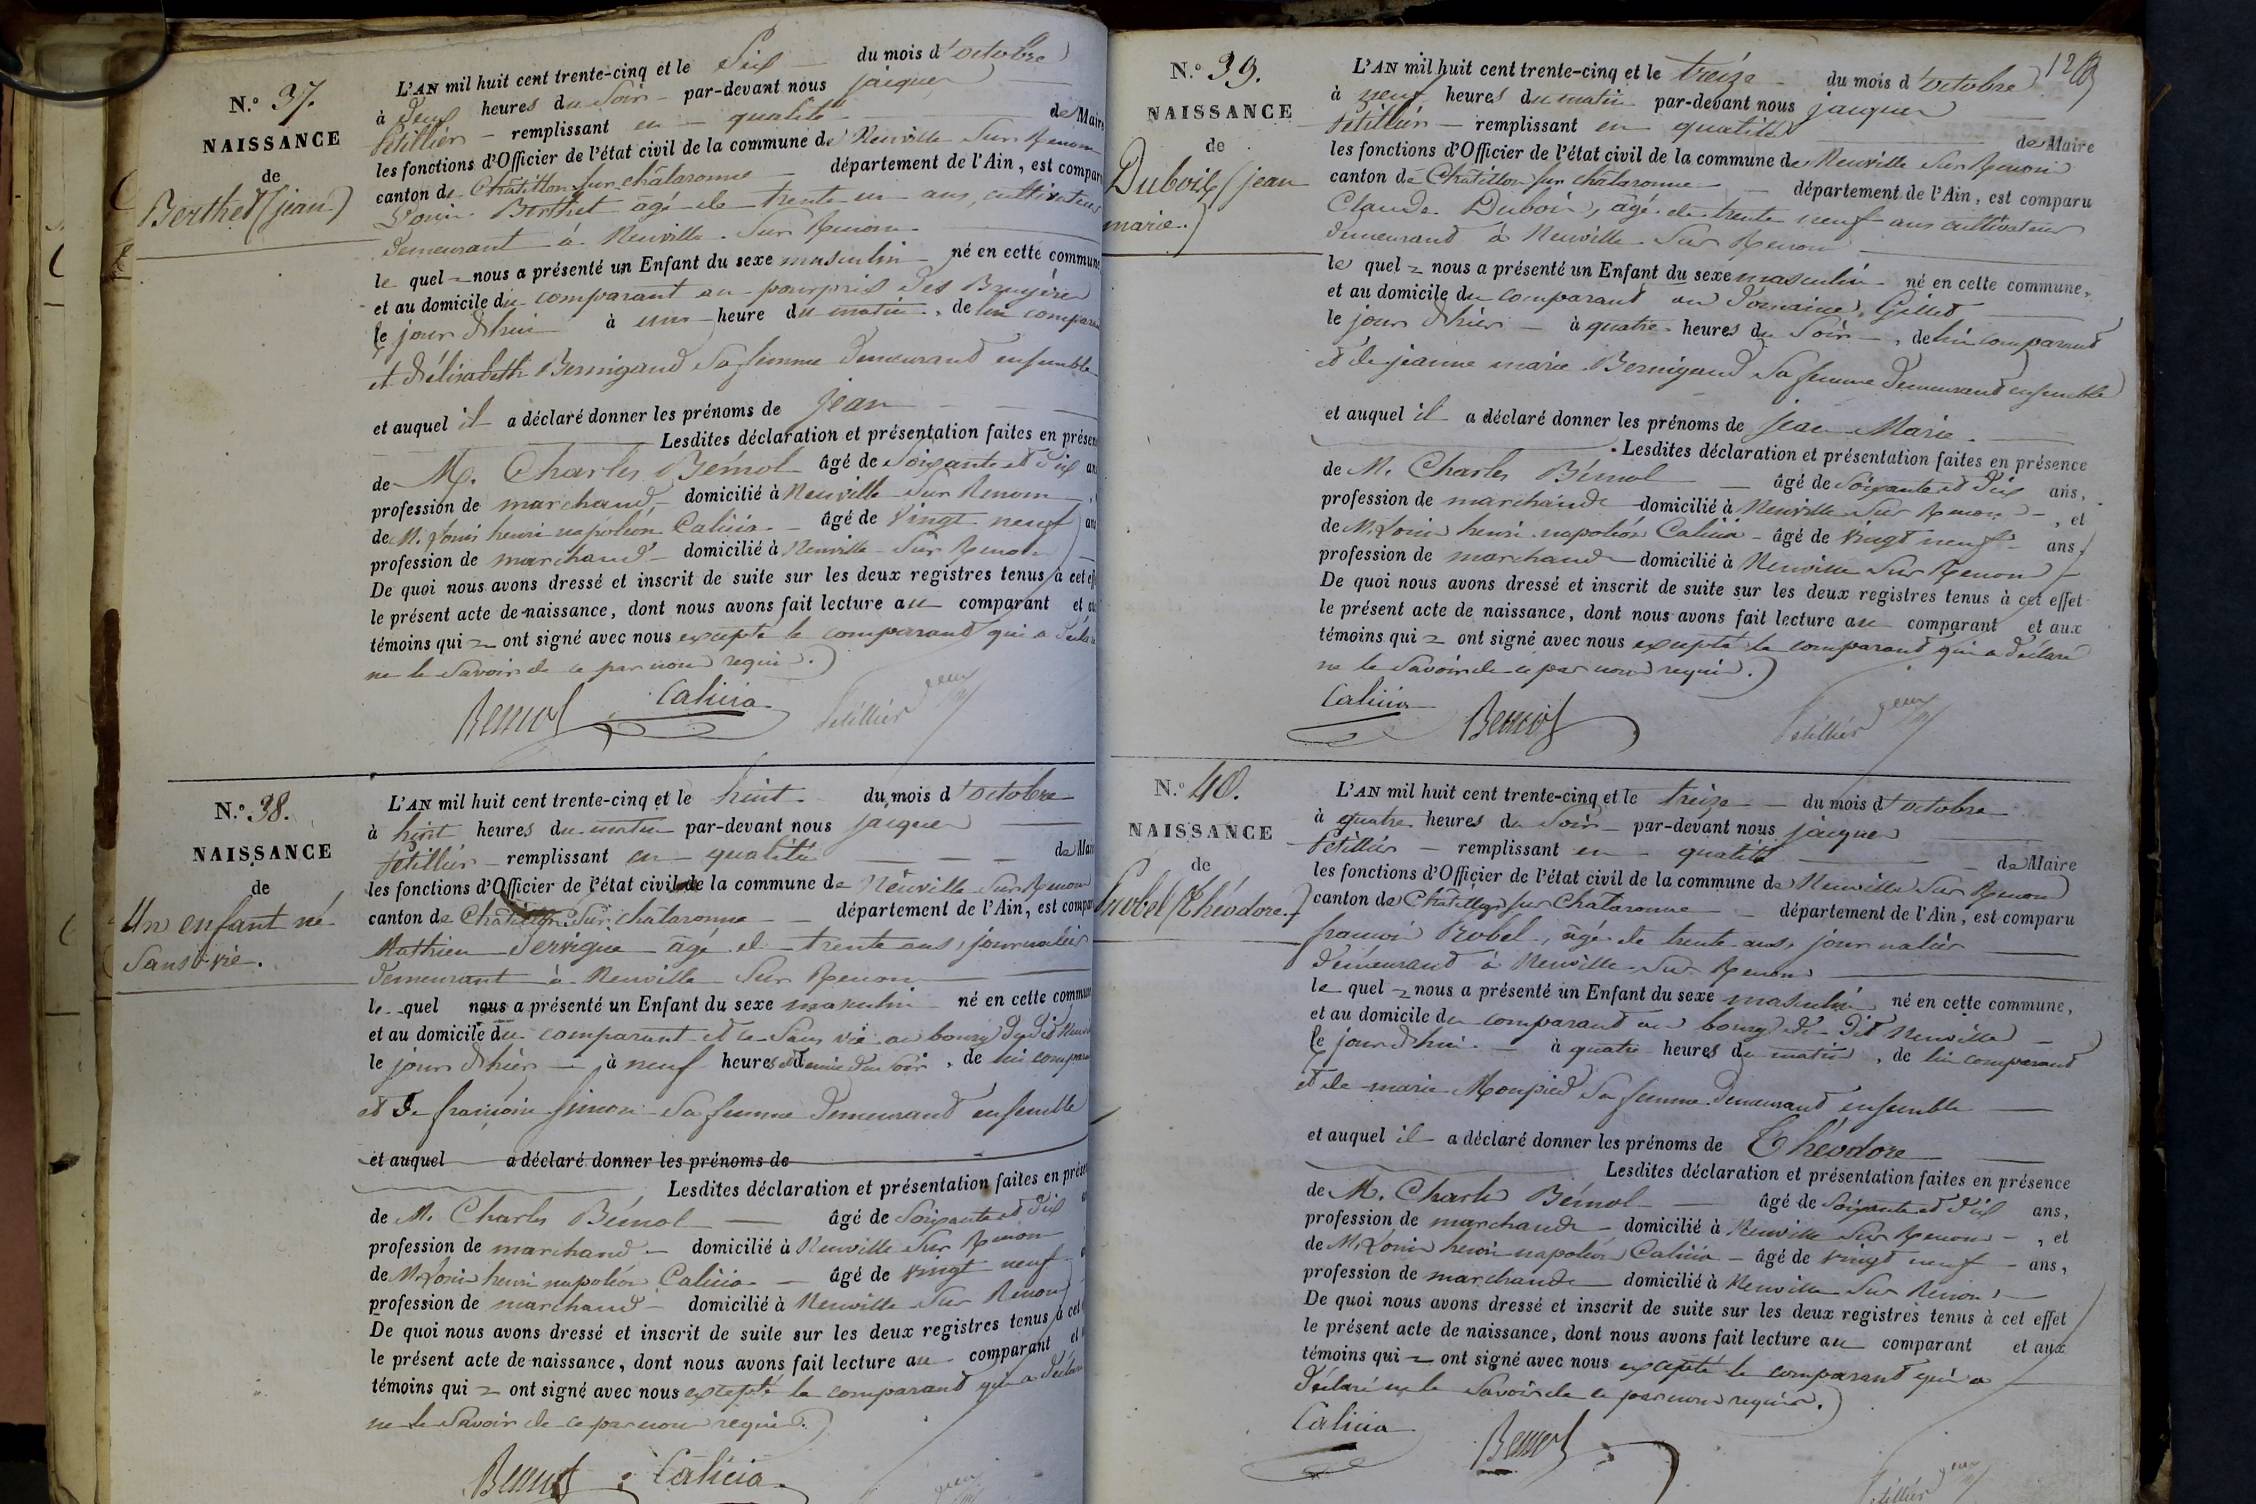 N.° 37.
NAISSANCE
de
Berthet (jean)
L'AN mil huit cent trente-cinq et le Six du mois d'octobre
à deux heures du Soir par-devant nous jacques
Petillier remplissant en qualité de Maire
les fonctions d'Officier de l'état civil de la commune de Neuville Sur Renom
canton de Châtillon sur châlaronne département de l'Ain, est comparu
Louis Berthet agé de trente un ans, cultivateur
demeurant à Neuville Sur Renom
le quel nous a présenté un Enfant du sexe masculin né en cette commune
et au domicile du comparant au pourpris des Bruyères
le jour d'hui à une heure du matin, de lui comparant
et d'élisabeth Bernigaud Sa femme demeurant ensemble
et auquel il a déclaré donner les prénoms de Jean
Lesdites déclaration et présentation faites en présen
de M. Charles Bémol âgé de Soixante et dix ans
profession de marchand domicilié à Neuville Sur Renom
de M. Louis henri napoléon Calicia âgé de Vingt neuf ans
profession de marchand domicilié à Neuville Sur Renom
De quoi nous avons dressé et inscrit de suite sur les deux registres tenus à cet eff
le présent acte de naissance, dont nous avons fait lecture au comparant et au
témoins qui ont signé avec nous excepté le comparant qui a déclaré
ne le Savoir de ce par nous requis.)
Bemol Calicia Petillier
N.° 38.
NAISSANCE
de
Un enfant né
Sans vie.
L'AN mil huit cent trente-cinq et le huit du mois d'octobre
à huit heures du matin par-devant nous jacques
Petillier remplissant en qualité de Mair
les fonctions d'Officier de l'état civil de la commune de Neuville Sur Renom
canton de Châtillon Sur châlaronne département de l'Ain, est compar
Mathieu Servigne âgé de trente ans, journalier
demeurant à Neuville Sur Renom
le quel nous a présenté un Enfant du sexe masculin né en cette commun
et au domicile du comparant et ce Sans vie au bourg du dit Neuvi
le jour d'hier à neuf heures et demie du Soir, de lui compara
et de françoise Simon Sa femme demeurant ensemble
et auquel a déclaré donner les prénoms de
Lesdites déclaration et présentation faites en prése
de M. Charles Bémol âgé de Soixante et dix
profession de marchand domicilié à Neuville Sur Renom
de M. Louis henri napoléon Calicia âgé de vingt neuf
profession de marchand domicilié à Neuville Sur Renom
De quoi nous avons dressé et inscrit de suite sur les deux registres tenus à cet
le présent acte de naissance, dont nous avons fait lecture au comparant et
témoins qui ont signé avec nous excepté le comparant qui a déclaré
ne le Savoir de ce par nous requis.)
Bemol Calicia
N.° 39.
NAISSANCE
de
Dubois (jean
marie.)
L'AN mil huit cent trente-cinq et le treize du mois d'octobre
à neuf heures du matin par-devant nous jacques
Petillier remplissant en qualité de Maire
les fonctions d'Officier de l'état civil de la commune de Neuville Sur Renom
canton de Châtillon sur châlaronne département de l'Ain, est comparu
Claude Dubois, âgé de trente neuf ans cultivateur
demeurant à Neuville Sur Renom
le quel nous a présenté un Enfant du sexe masculin né en cette commune,
et au domicile du comparant au Domaine Gillet
le jour d'hier à quatre heures du Soir, de lui comparant
et de jeanne marie Bernigaud Sa femme demeurant ensemble
et auquel il a déclaré donner les prénoms de Jean Marie.
Lesdites déclaration et présentation faites en présence
de M. Charles Bémol âgé de Soixante et dix ans,
profession de marchand domicilié à Neuville Sur Renom, et
de M. Louis henri napoléon Calicia âgé de Vingt neuf ans,
profession de marchand domicilié à Neuville Sur Renom
De quoi nous avons dressé et inscrit de suite sur les deux registres tenus à cet effet
le présent acte de naissance, dont nous avons fait lecture au comparant et aux
témoins qui ont signé avec nous excepté le comparant qui a déclaré
ne le Savoir de ce par nous requis.)
Calicia Bemol Petillier
N.° 40.
NAISSANCE
de
Probel (Théodore.)
L'AN mil huit cent trente-cinq et le treize du mois d'octobre
à quatre heures du Soir par-devant nous jacques
Petillier remplissant en qualité de Maire
les fonctions d'Officier de l'état civil de la commune de Neuville Sur Renom
canton de Châtillon sur Chalaronne département de l'Ain, est comparu
françois Probel, âgé de trente ans, journalier
demeurant à Neuville Sur Renom
le quel nous a présenté un Enfant du sexe masculin né en cette commune,
et au domicile du comparant au bourg du dit Neuville
le jour d'hui à quatre heures du matin, de lui comparant
et de marie Monpied Sa femme demeurant ensemble
et auquel il a déclaré donner les prénoms de Théodore
Lesdites déclaration et présentation faites en présence
de M. Charles Bémol âgé de Soixante et dix ans,
profession de marchand domicilié à Neuville Sur Renom, et
de M. Louis henri napoléon Calicia âgé de vingt neuf ans,
profession de marchand domicilié à Neuville Sur Renom
De quoi nous avons dressé et inscrit de suite sur les deux registres tenus à cet effet
le présent acte de naissance, dont nous avons fait lecture au comparant et aux
témoins qui ont signé avec nous excepté le comparant qui a
déclaré ne le Savoir de ce par nous requis.)
Calicia Bemol Petillier